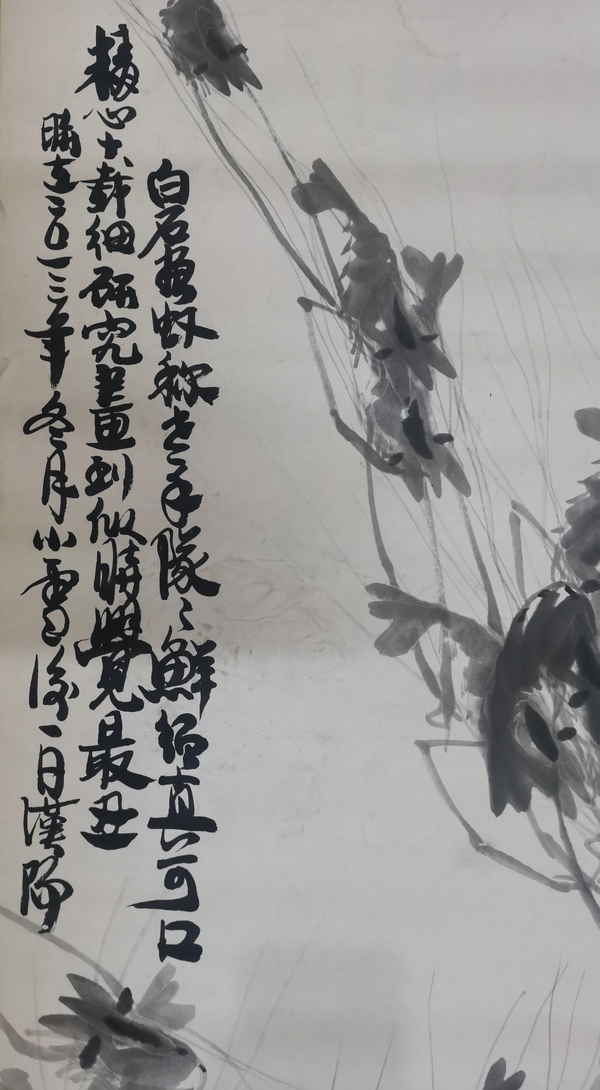 白石画虾称老手队队鲜绝真可口
精心大裁细研究画到似时觉最丑
时在二〇一三年冬月小雪后一日汉阳